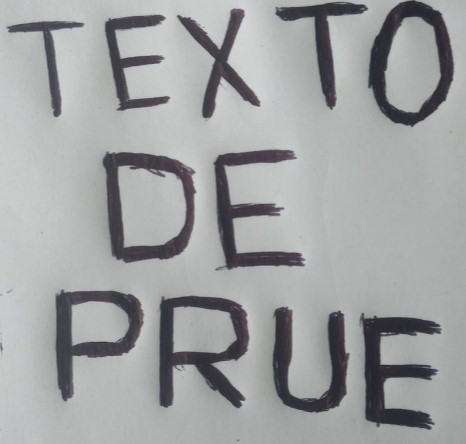 TEXTO
DE
PRUE